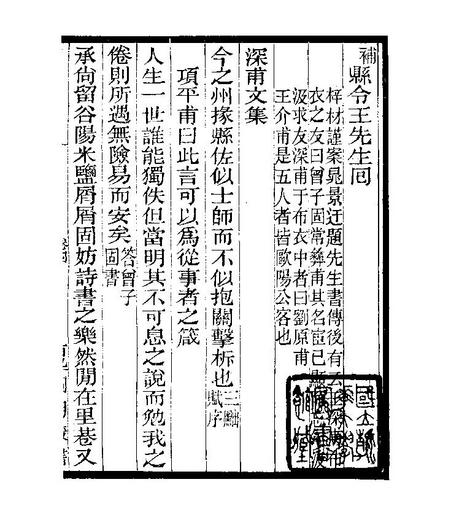 補縣令王先生囘
梓材謹案晁景迂題先生書傳後有云
衣之友曰曾子固常彝甫其名宦已顯
汲求友深甫于布衣中者曰劉原甫
王介甫是五人者皆歐陽公客也
深甫文集
今之州掾縣佐似士師而不似抱關擊柝也三黜賦序
項平甫曰此言可以為從事者之箴
人生一世誰能獨佚但當明其不可息之說而勉我之
倦則所遇無險易而安矣答曾子固書
承尙留谷陽米鹽屑屑固妨詩書之樂然閒在里巷又